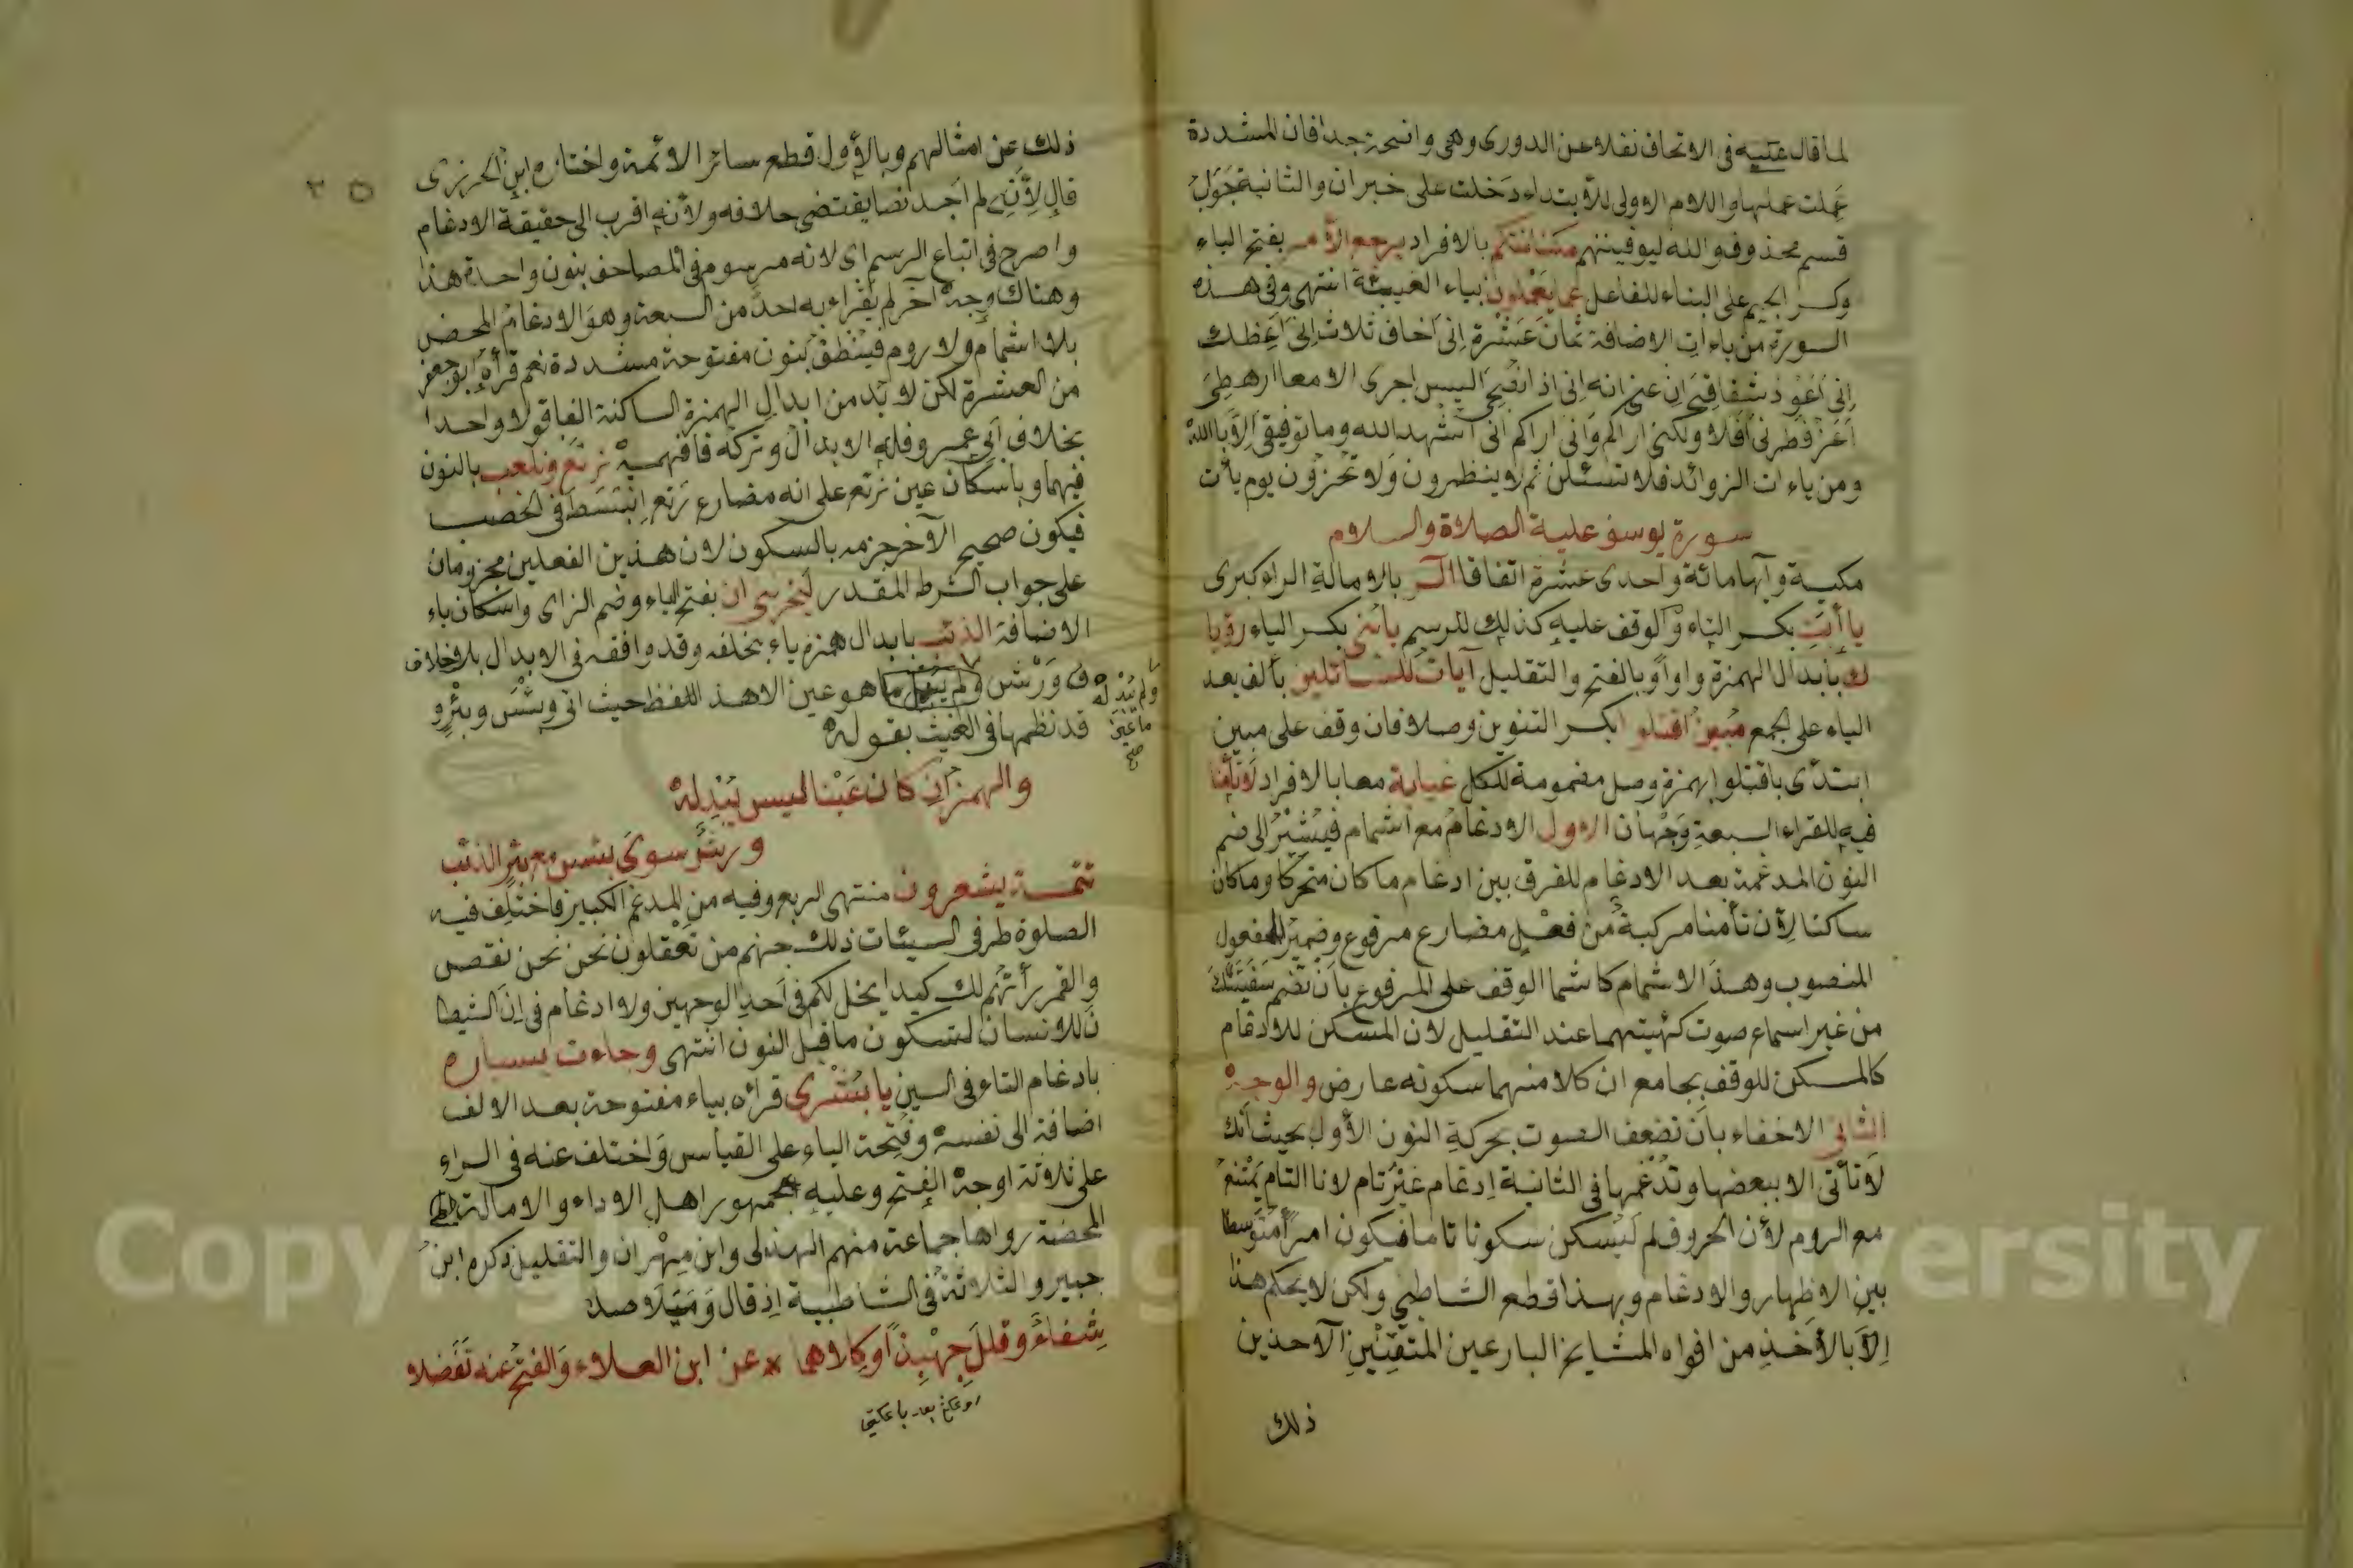 لما قال عليه في الاتحاف نقلا عن الدوري وهي واضحة جدا فان المشددة
عملت عملها واللام الاولى للابتداء دخلت على خبر ان والثانية جواب
قسم محذوف والله ليوفينهم مكانتكم بالافراد يرجع الأمر بفتح الياء
وكسر الجيم على البناء للفاعل عما يعملون بياء الغيبة انتهى وفي هذه
السورة من ياءات الاضافة ثمان عشرة إني أخاف ثلاث إني أعظك
إني أعوذ شقاقي أن عني انه إني اذا نصحي اليس اجرى الا معا ارهطي
أعز فطرني أفلا ولكني اراكم وإني اراكم اني أشهد الله وما توفيقي إلا بالله
ومن ياءات الزوائد فلا تسئلن ثم لا ينظرون ولا تخزون يوم يأت
سورة يوسف عليه الصلاة والسلام
مكية وآيها مائة واحدى عشرة اتفاقا الر بالامالة الراء كبرى
يا أبت بكسر التاء والوقف عليه كذلك للرسم يا بني بكسر الياء رؤيا
ك بابدال الهمزة واوا وبالفتح والتقليل آيات للسائلين بألف بعد
الياء على الجمع مبين اقتلوا بكسر التنوين وصلا فان وقف على مبين
ابتدئ باقتلوا بهمزة وصل مضمومة للكل غيابة معا بالافراد لا تأمنا
فيه للقراء السبعة وجهان الاول الادغام مع اشمام فيشير الى ضم
النون المدغمة بعد الادغام للفرق بين ادغام ما كان متحركا وما كان
ساكنا لأن تأمنا مركبة من فعل مضارع مرفوع وضمير المفعول
المنصوب وهذا الاشمام كاشما الوقف على المرفوع بأن تضم شفتيك
من غير اسماع صوت كهيئتهما عند التقليل لان المسكن للادغام
كالمسكن للوقف بجامع ان كلا منهما سكونه عارض والوجه
الثاني الاخفاء بأن تضعف الصوت بحركة النون الأولى بحيث أنك
لا تأتي الا ببعضها وتدغمها في الثانية إدغام غير تام لانا التام يمتنع
مع الروم لأن الحروف لم يسكن سكونا تاما فيكون امرا متوسطا
بين الاظهار والادغام وبهذا قطع الشاطبي ولكن لا يحكم هذا
إلا بالأخذ من افواه المشايخ البارعين المتقنين الآخذين
ذلك
٢٥
ذلك عن امثالهم وبالأول قطع سائر الائمة واختاره ابن الجزري
قال لأنني لم أجد نصا يقتضي خلافه ولأنه اقرب الى حقيقة الادغام
واصرح في اتباع الرسم اى لانه مرسوم في المصاحف بنون واحدة هذا
وهناك وجه آخر لم يقراء به احد من السبعة وهو الادغام المحض
بلا اشمام ولا روم فينطق بنون مفتوحة مشددة نعم قرأه ابو جعفر
من العشرة لكن لا بد من ابدال الهمزة الساكنة الفا قولا واحدا
بخلاف أبي عمرو فله الابدال وتركه فافهمه نرتع ونلعب بالنون
فيهما وباسكان عين نرتع على انه مضارع رتع انبسط في الخصب
فيكون صحيح الآخر جزمه بالسكون لان هذين الفعلين مجزومان
على جواب الشرط المقدر ليحزنني ان بفتح الياء وضم الزاى واسكان ياء
الاضافة الذئب بابدال همزه ياء بخلفه وقد وافقه في الابدال بلا خلاف
ورش ولم يبدل ما هو عين الا هذا اللفظ حيث اتى وبئس وبئر و
ولم يبدله
ما عين
صح
قد نظمها في الغيث بقوله
والهمز إن كان عينا ليس يبدله
ورش سوى بئس مع بئر الذئب
تتمة يشعرون منتهى الربع وفيه من المدغم الكبير فاختلف فيه
الصلوة طرفي السيئات ذلك جهنم من تعقلون نحن نحن نقص
والقمر رأيتهم لك كيدا يخل لكم في أحد الوجهين ولا ادغام في إن الشيطا
ن للانسان لسكون ما قبل النون انتهى وجاءت سيارة
بادغام التاء في السين يا بشرى قرائه بياء مفتوحة بعد الالف
اضافة الى نفسه وفتحة الياء على القياس واختلف عنه في الراء
على ثلاثة اوجه الفتح وعليه جمهور اهل الاداء والامالة
المحضة رواها جماعة منهم الهذلي وابن مهران والتقليل ذكره ابن
جبير والثلاثة في الشاطبية إذ قال وميلا صد
شفاء وقلل جهبذا وكلاهما * عن ابن العلاء والفتح عنه تفضلا